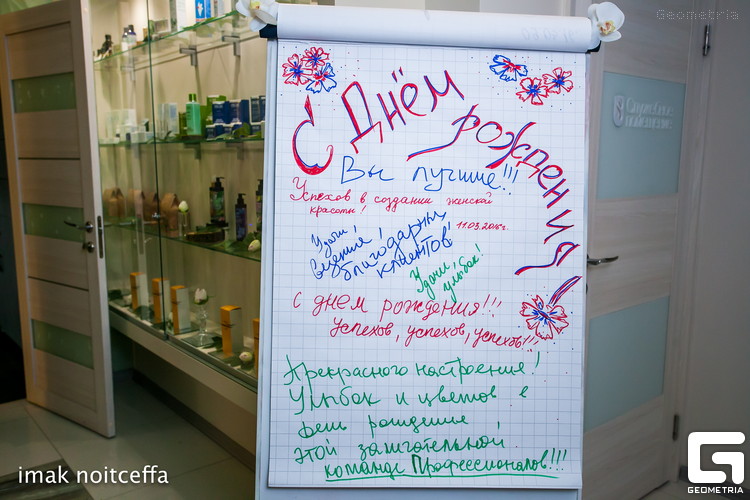 Geometria
С Днём рождения!
Вы лучшие!!!
Успехов в создании женской
красоты!
11.03.2016г.
Удачи,
везения!
благодарных
клиентов!
Удачи,
улыбок!
С днем рождения!!!
Успехов, успехов, успехов!!!
Прекрасного настроения!
Улыбок и цветов в
день рождения
этой зажигательной
команде Профессионалов!!!
Служебное
помещение
imak noitceffa
GEOMETRIA